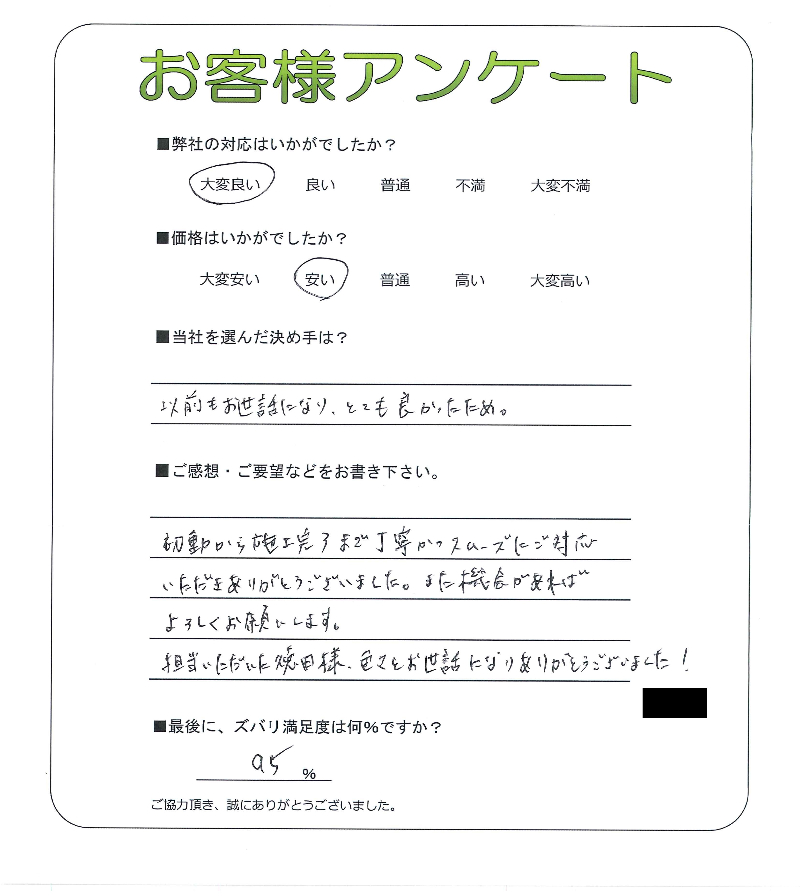 お客様アンケート
■弊社の対応はいかがでしたか？
大変良い 良い 普通 不満 大変不満
■価格はいかがでしたか？
大変安い 安い 普通 高い 大変高い
■当社を選んだ決め手は？
以前もお世話になり、とても良かったため。
■ご感想・ご要望などをお書き下さい。
初動から施工完了まで丁寧かつスムーズにご対応
いただきありがとうございました。また機会があれば
よろしくお願いします。
担当いただいた焼田様、色々とお世話になりありがとうございました！
■最後に、ズバリ満足度は何%ですか？
95 %
ご協力頂き、誠にありがとうございました。